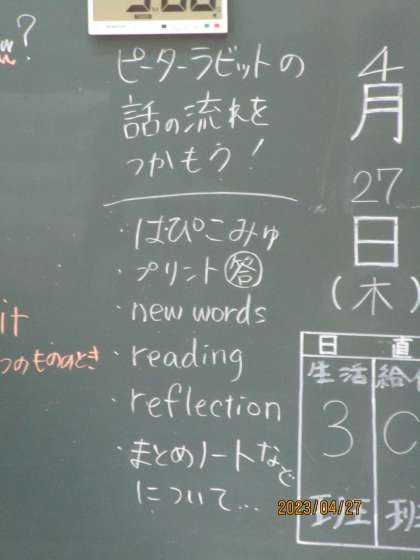 ピーターラビットの
話の流れを
つかもう!
・はぴこみゅ
・プリント 答
・new words
・reading
・reflection
・まとめノートなど
について...
4
月
27
日
(木)
?
it
つのもののとき
日 直
生活 給
3
班 班
2023/04/27